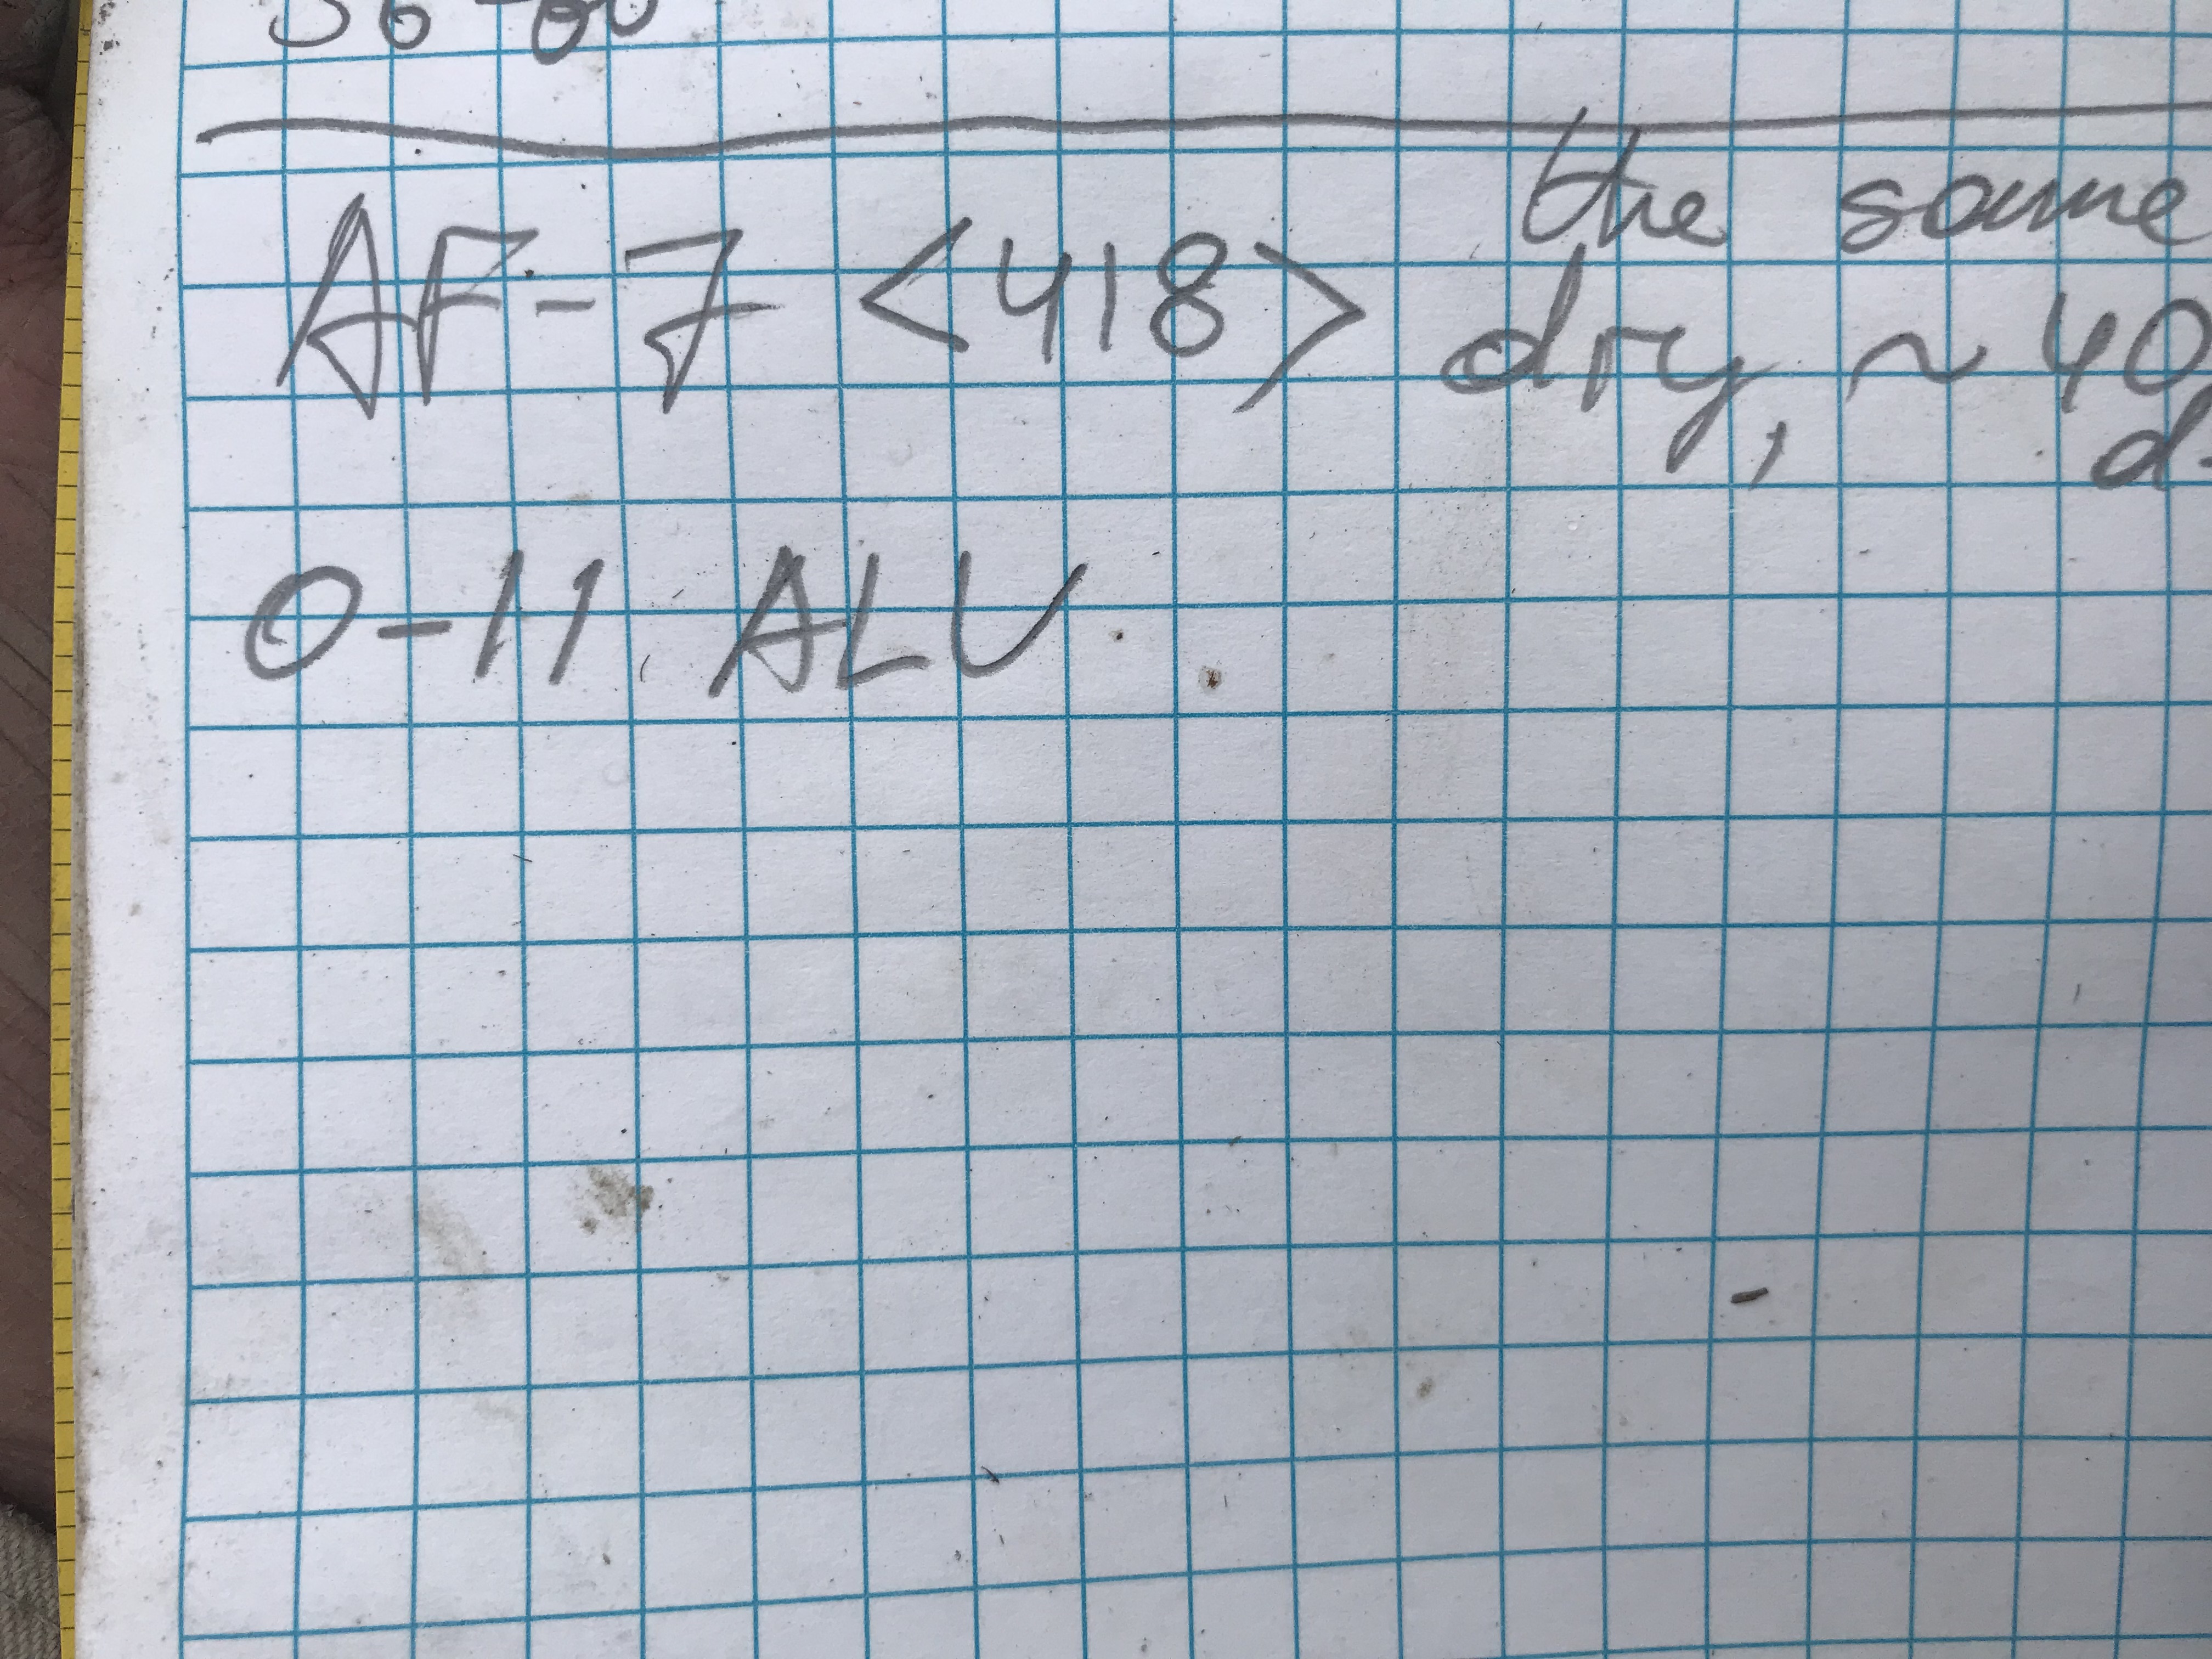 the same
AF-7 <418> dry, ~ 40
0-11 ALU